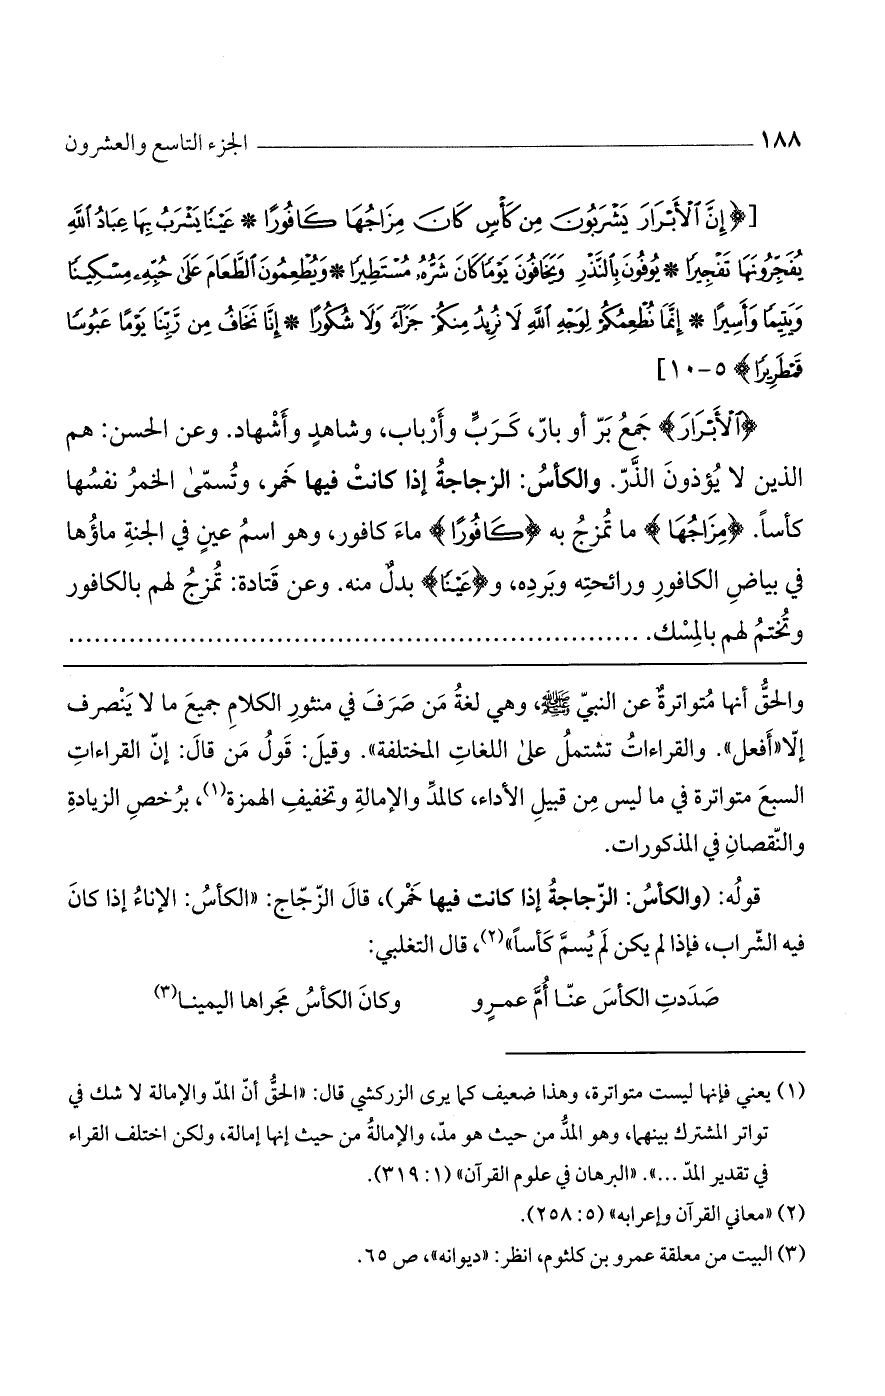 ١٨٨ الجزء التاسع والعشرون
[﴿إِنَّ ٱلْأَبْرَارَ يَشْرَبُونَ مِن كَأْسٍ كَانَ مِزَاجُهَا كَافُورًا * عَيْنًا يَشْرَبُ بِهَا عِبَادُ ٱللَّهِ
يُفَجِّرُونَهَا تَفْجِيرًا * يُوفُونَ بِٱلنَّذْرِ وَيَخَافُونَ يَوْمًا كَانَ شَرُّهُۥ مُسْتَطِيرًا * وَيُطْعِمُونَ ٱلطَّعَامَ عَلَىٰ حُبِّهِۦ مِسْكِينًا
وَيَتِيمًا وَأَسِيرًا * إِنَّمَا نُطْعِمُكُمْ لِوَجْهِ ٱللَّهِ لَا نُرِيدُ مِنكُمْ جَزَآءً وَلَا شُكُورًا * إِنَّا نَخَافُ مِن رَّبِّنَا يَوْمًا عَبُوسًا
قَمْطَرِيرًا﴾ ٥-١٠]
﴿ٱلْأَبْرَارَ﴾ جَمعُ بَرّ أو بارّ، كَرَبٍّ وأَرْباب، وشاهدٍ وأَشْهاد. وعن الحسن: هم
الذين لا يُؤذونَ الذَّرّ. والكأسُ: الزجاجةُ إذا كانتْ فيها خَمر، وتُسمّىٰ الخمرُ نفسُها
كأساً. ﴿مِزَاجُهَا﴾ ما تُمزجُ به ﴿كَافُورًا﴾ ماءَ كافور، وهو اسمُ عينٍ في الجنةِ ماؤُها
في بياضِ الكافورِ ورائحتِه وبَردِه، و﴿عَيْنًا﴾ بدلٌ منه. وعن قَتادة: تُمزجُ لهم بالكافور
وتُختمُ لهم بالمِسْك. ..........................................................
والحقُّ أنها مُتواترةٌ عن النبيّ ﷺ، وهي لغةُ مَن صَرَفَ في منثورِ الكلامِ جميعَ ما لا يَنْصرف
إلّا «أَفعل». والقراءاتُ تشتملُ علىٰ اللغاتِ المختلفة». وقيلَ: قَولُ مَن قالَ: إنّ القراءاتِ
السبعَ متواترة في ما ليس مِن قبيلِ الأداء، كالمدِّ والإمالةِ وتخفيفِ الهمزة(١)، برُخصِ الزيادةِ
والنّقصانِ في المذكورات.
قولُه: (والكأسُ: الزّجاجةُ إذا كانت فيها خَمْر)، قالَ الزّجّاج: «الكأسُ: الإناءُ إذا كانَ
فيه الشّراب، فإذا لم يكن لَم يُسمَّ كَأساً»(٢)، قال التغلبي:
صَدَدتِ الكأسَ عنّا أُمَّ عمرٍو وكانَ الكأسُ مَجراها اليمينا(٣)
(١) يعني فإنها ليست متواترة، وهذا ضعيف كما يرى الزركشي قال: «الحقُّ أنّ المدّ والإمالة لا شك في
تواتر المشترك بينهما، وهو المدُّ من حيث هو مدّ، والإمالةُ من حيث إنها إمالة، ولكن اختلف القراء
في تقدير المدّ ...». «البرهان في علوم القرآن» (١: ٣١٩).
(٢) «معاني القرآن وإعرابه» (٥: ٢٥٨).
(٣) البيت من معلقة عمرو بن كلثوم، انظر: «ديوانه»، ص ٦٥.